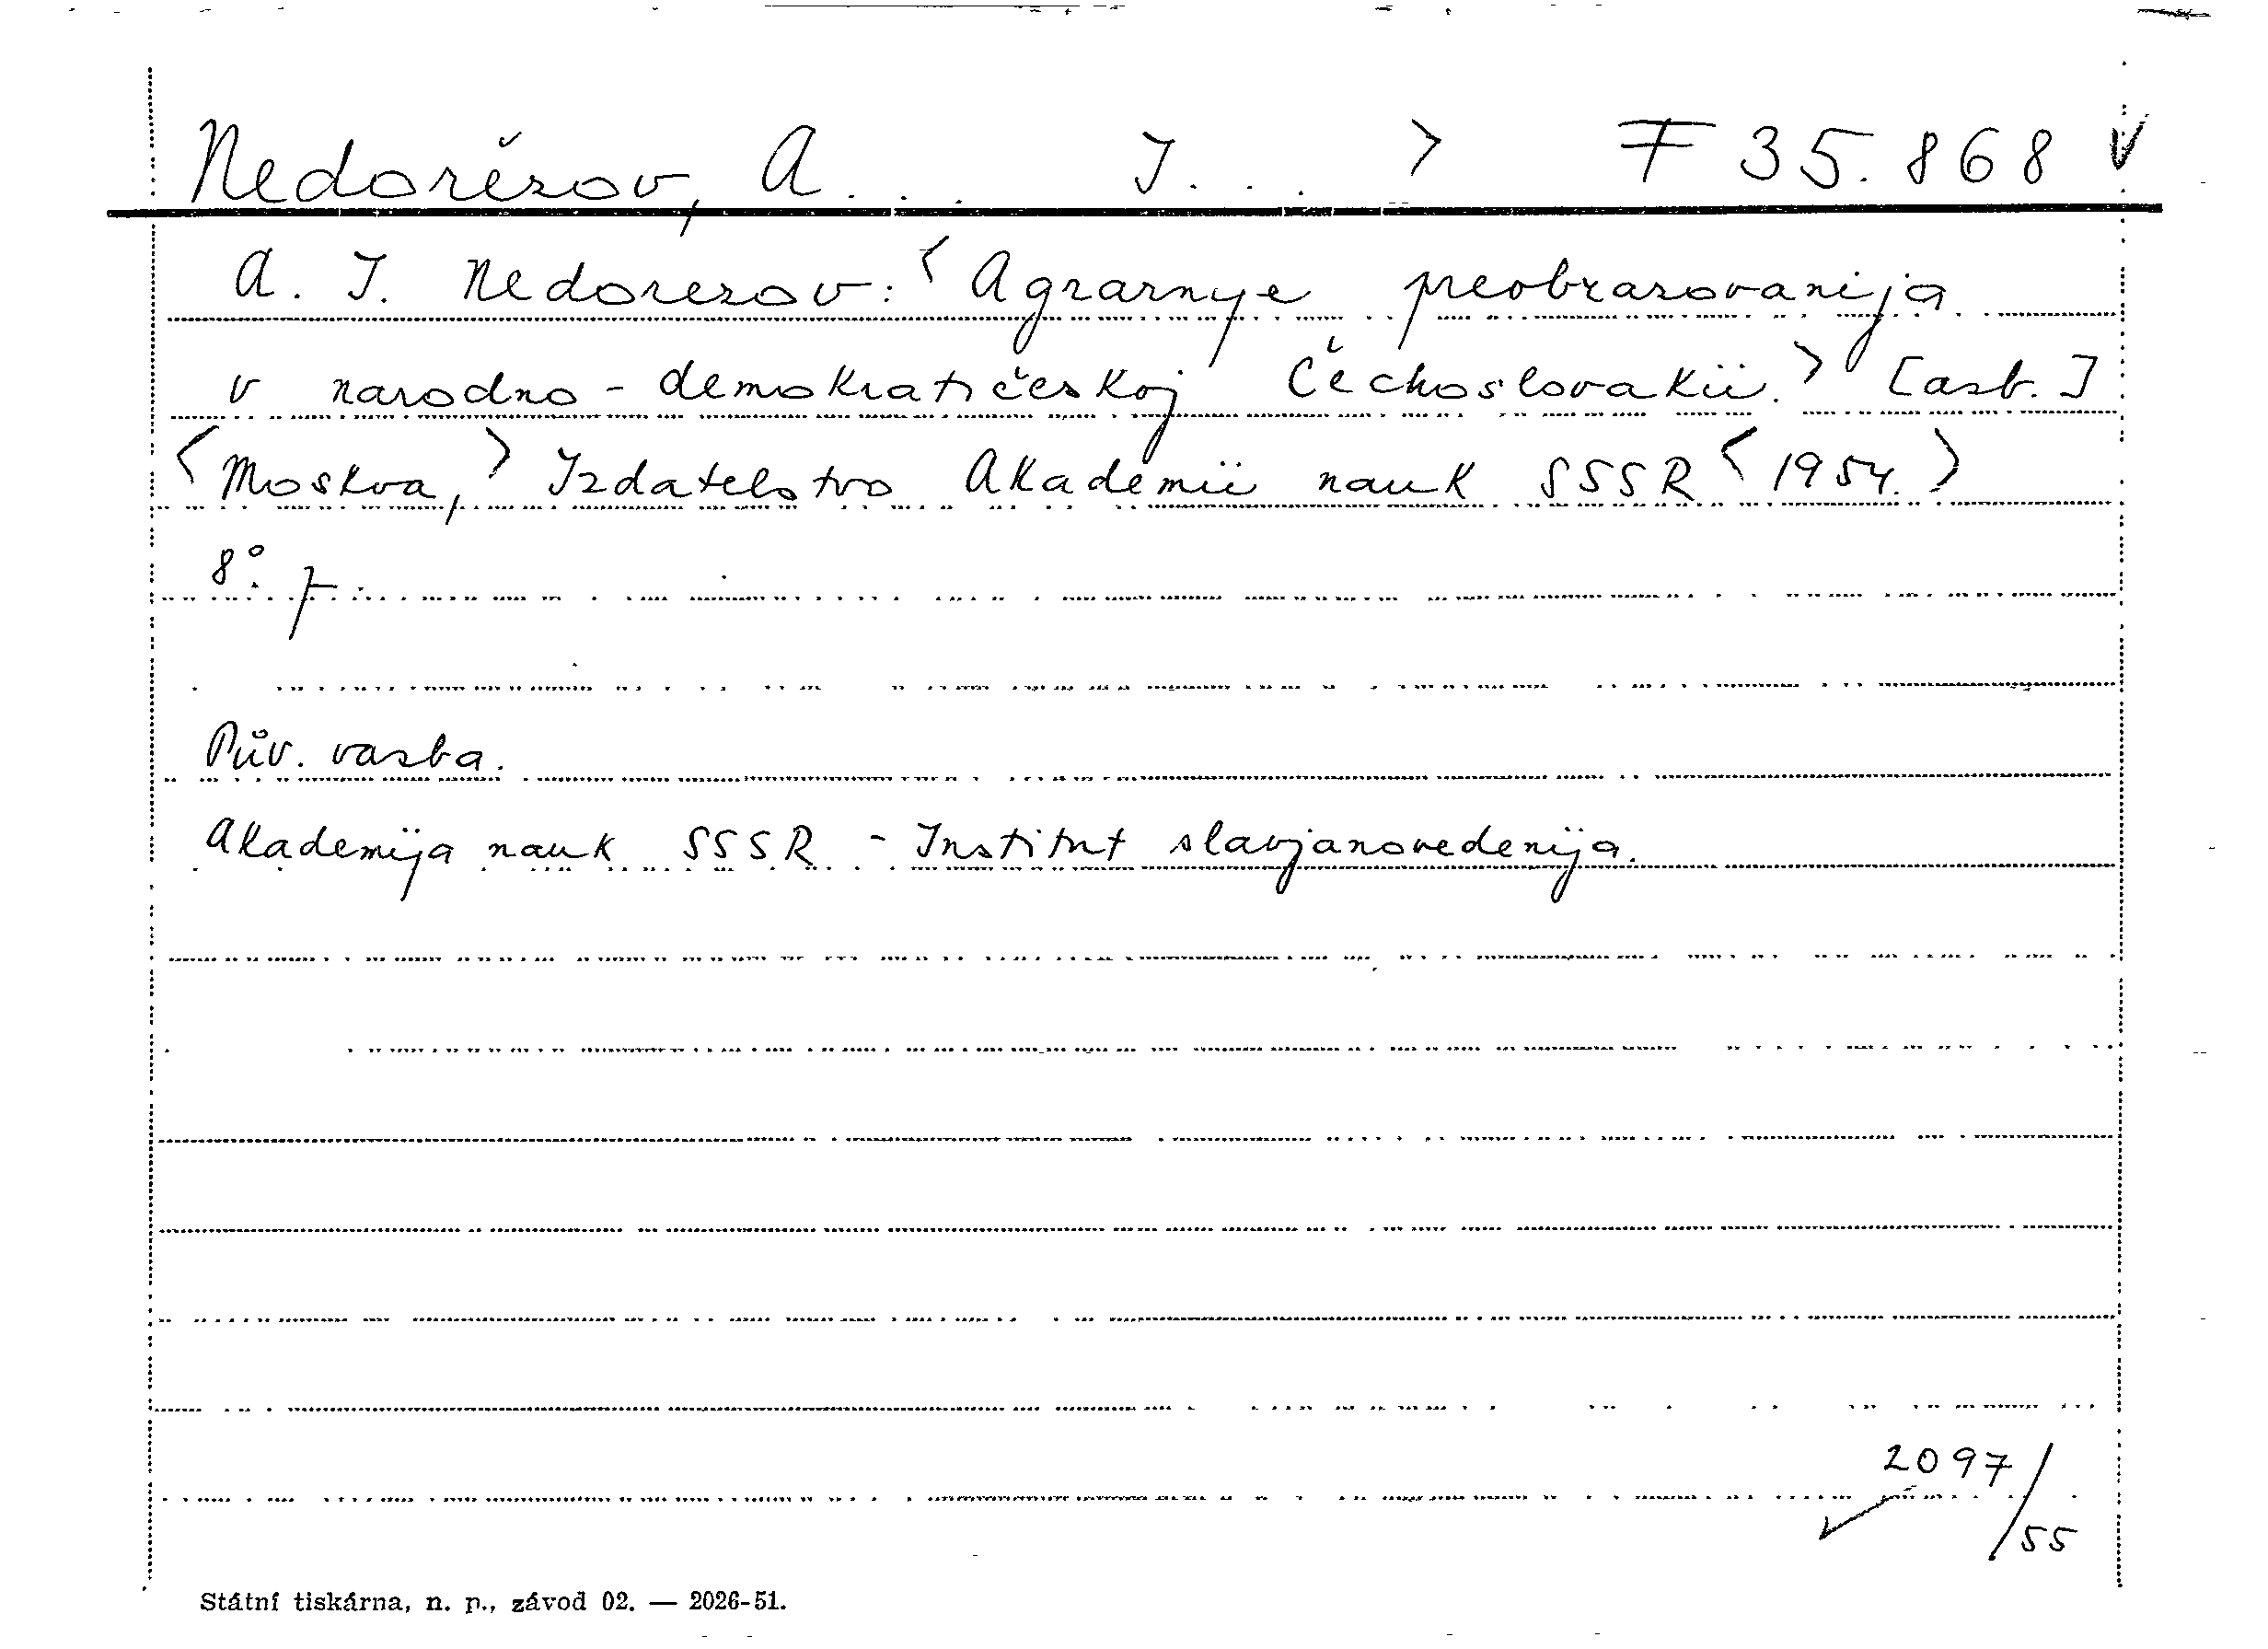 Nedorězov, A... I... > F 35.868 V
A. I. Nedorezov: <Agrarnye preobrazovanija
v narodno-demokratičeskoj Čechoslovakii.> [azb.]
<Moskva,> Izdatelstvo Akademii nauk SSSR <1954.>
8°.
Pův. vazba.
Akademija nauk SSSR - Institut slavjanovedenija.
2097/55
Státní tiskárna, n. p., závod 02. — 2026-51.